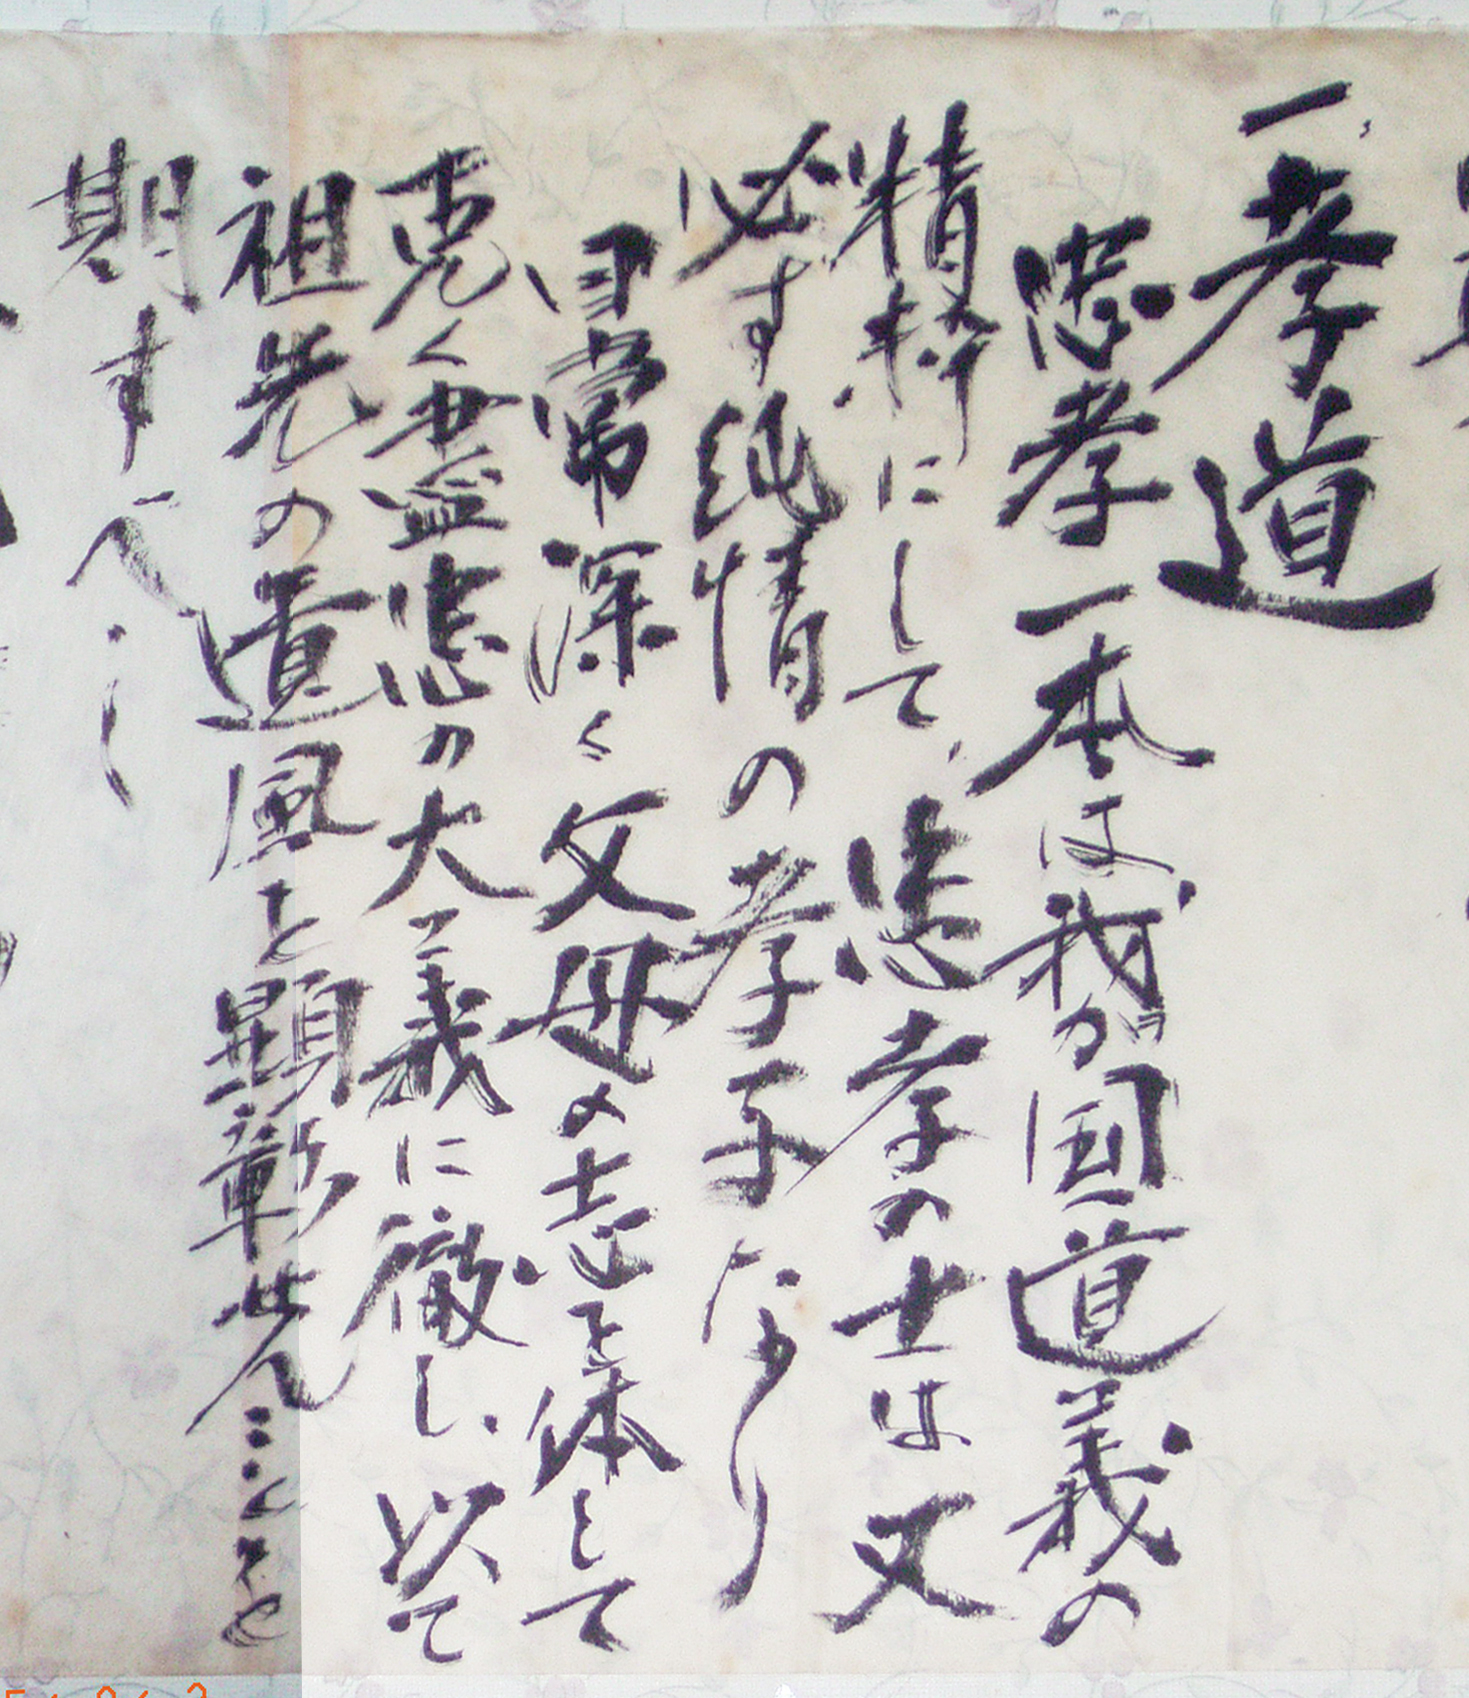 一、孝道
忠孝一本は我が国道義の
精粋にして、忠孝の士は又
必す純情の孝子なり
日常深く父母の志を体して
克く盡忠の大義に徹し、以て
祖先の遺風を顕彰せんことを
期すべし